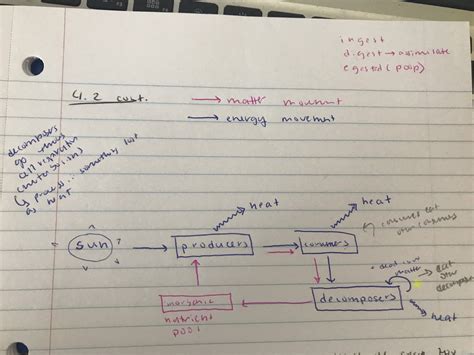 ingest
digest → assimilate
egested (poop)
4.2 cont.
→ matter movement
→ energy movement
decomposers
go thru
cell respiration
process
as heat
heat
heat
consumers eat
other consumers
sun
producers
consumers
dead
matter
eat
other
decomposers
inorganic
nutrient
pool
decomposers
heat